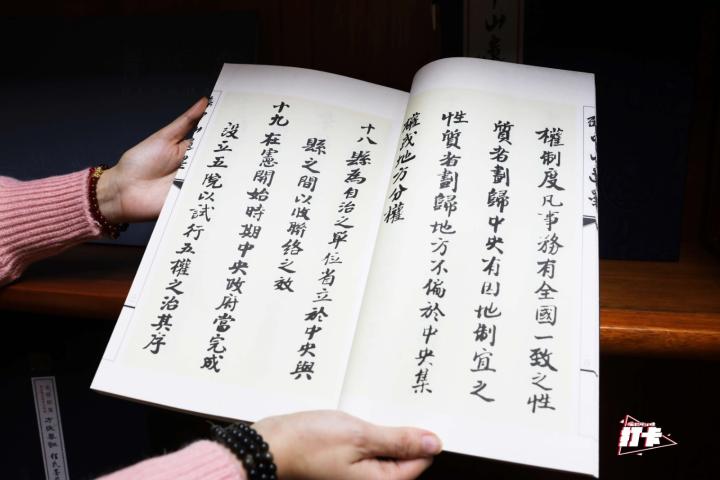 權制度凡事務有全國一致之性
質者劃歸中央有因地制宜之
性質者劃歸地方不偏於中央集
權或地方分權
十八 縣為自治之單位省立於中央與
縣之間以收聯絡之效
十九 在憲開始時期中央政府當完成
設立五院以試行五權之治其序
打卡